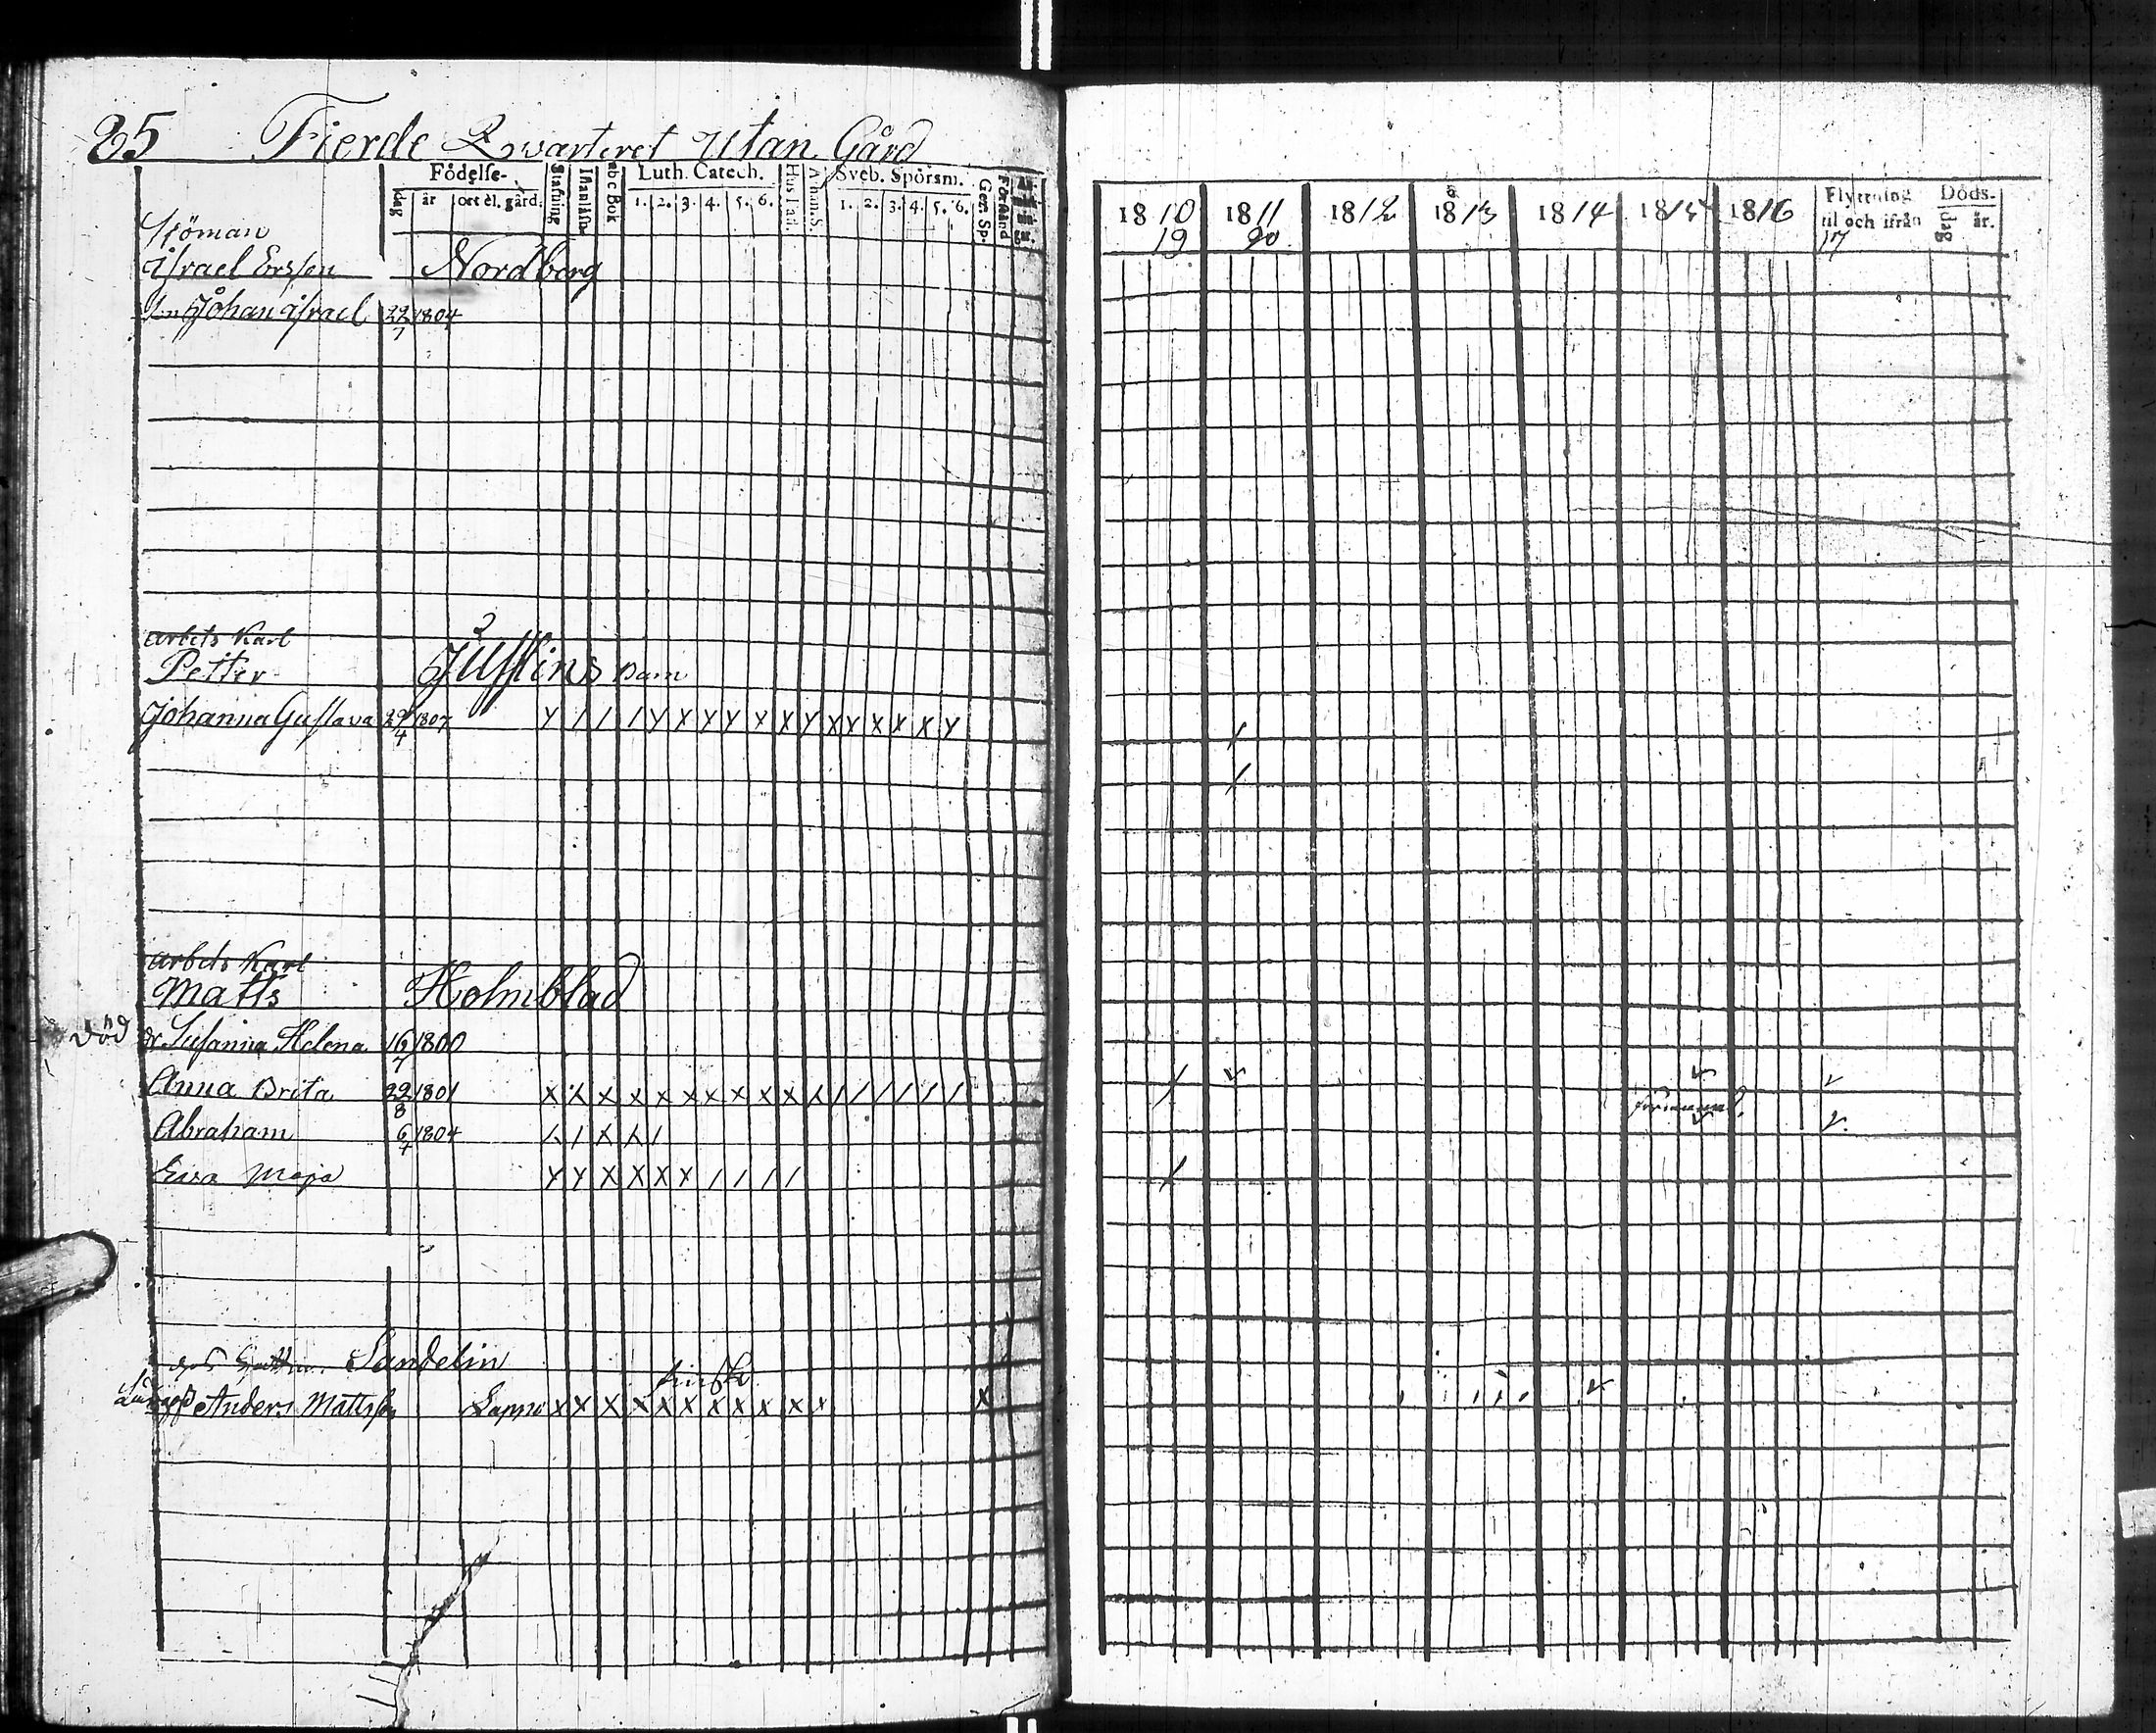 85 Fierde Qvarteret Utan Gård
Födelse-
dag år ort el. gård.
Stafning
Innanläsn
abc Bok
Luth. Catech.
1. 2. 3. 4. 5. 6.
Hus Tafl.
Athan. S.
Sveb. Spörsm.
1. 2. 3. 4. 5. 6.
Gez. Sp.
Förstånd
An-
märk-
nin-
gar.
Sjöman
Israel Ersson Nordberg
Sn Johan Israel 22/7 1804
arbets Karl
Petter
Johanna Gustava 29/4 1807 Y / / / Y X Y Y X X Y X Y X X X Y
arbets Karl
Matts Holmblad
död dr Susanna Helena 16/7 1800
Anna Brita 22/8 1801 X X X X X X X X X X X / / / / / /
Abraham 6/7 1804
Eva Maja Y Y X X X X / / / /
Sandelin
Anders Mattsson Lappo X X X X X X X X X X X X
1810 1811 1812 1813 1814 1815 1816
19 20 17
Flyttning
til och ifrån
Döds-
dag år.